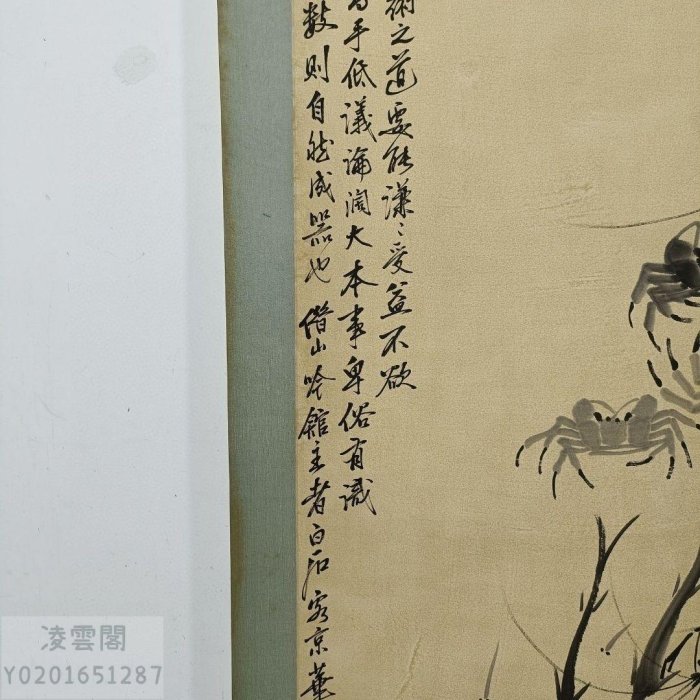 術之道要能謙謙受益不欲
手低議論闊大本事卑俗有識
數則自然成器也借山吟館主者白石客京華
凌雲閣
Y0201651287